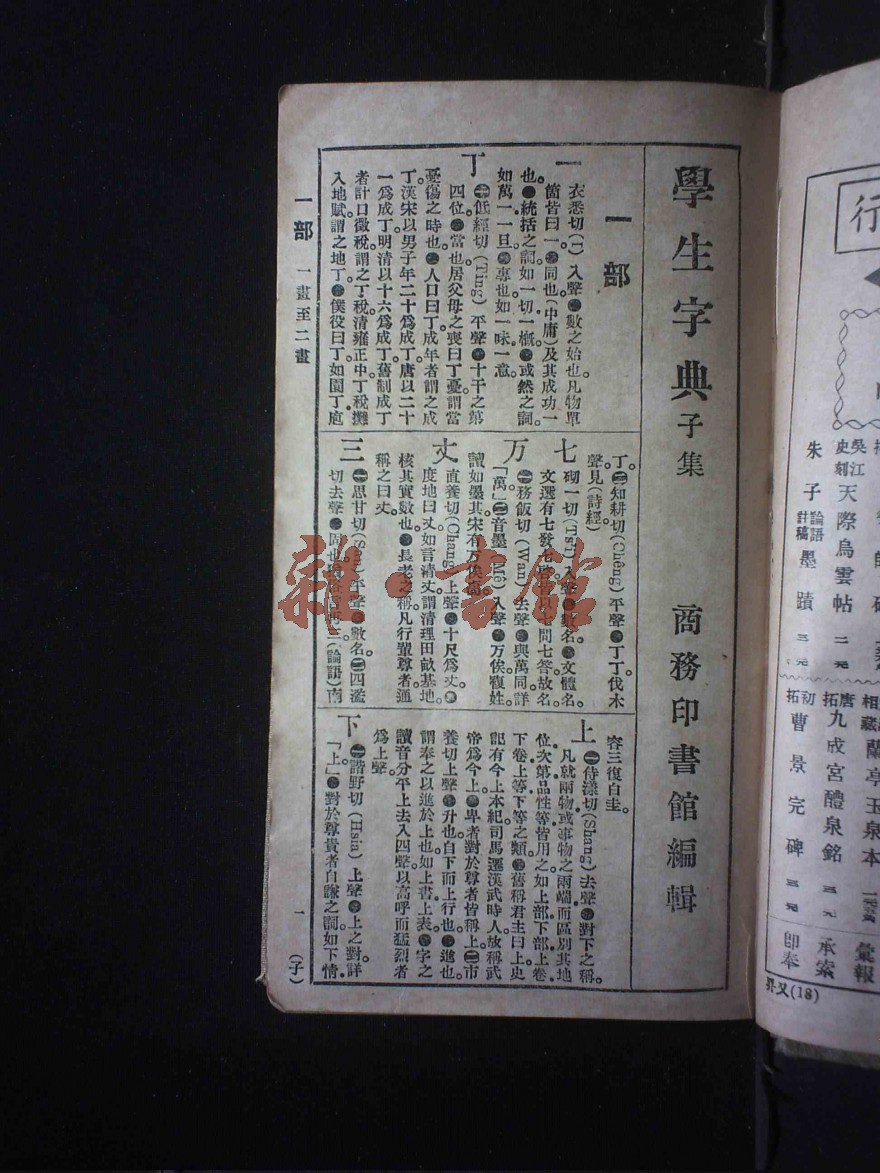 學生字典 子集 商務印書館編輯
一部
一 衣悉切(I)入聲●數之始也凡物單
箇皆曰一●同也(中庸)及其成功一
也●統括之詞如一切一概●或然之詞
如萬一一旦●專也如一味一意
丁 ㊀低經切(Ting)平聲●十干之第
四位●當也居父母之喪曰丁憂謂當
憂傷之時也●人口曰丁成年者謂之成
丁漢宋以男子年二十爲成丁唐以二十
一爲成丁明清以十六爲成丁舊制成丁
者計口徵稅謂之丁稅清雍正中丁稅攤
入地賦謂之地丁●僕役曰丁如園丁庖
丁㊁知耕切(Chêng)平聲●丁丁伐木
聲見(詩經)
七 砌一切(Tsi)入聲●數名●文體名
文選有七發七啓皆以七問七答故名
万 ㊀務飯切(Wan)去聲●與萬同詳
「萬」㊁音墨(Mê)入聲●万俟複姓
讀如墨其宋有万俟卨
丈 直養切(Chang)上聲●十尺爲丈●
度地曰丈如言清丈謂清理田畝基地
核其實數也●長老之稱凡行輩尊者通
稱之曰丈
三 ㊀思甘切(San)平聲●數名㊁四濫
切去聲●再三(論語)南
容三復白圭
上 ㊀侍漾切(Shang)去聲●對下之稱
凡就兩物或事物之兩端而區別其地
位次第品性等皆用之如上部下部上卷
下卷上等下等之類●舊稱君主曰上史
記有今上本紀司馬遷漢武時人故稱武
帝爲今上●卑者對於尊者皆稱上㊁市
養切上聲●升也自下而上行也●進也
謂奉之以進於上也如上書上表●字之
讀音分平上去入四聲以高呼而猛烈者
爲上聲
下 ㊀諧野切(Hsia)上聲●上之對詳
「上」●對於尊貴者自謙之詞如下情
一部 一畫至二畫
一 (子)
雜·書館
行
吳江史刻 天際烏雲帖 二元
朱子論語註稿墨蹟 三元
蘭亭玉泉本
唐拓九成宮醴泉銘 三元
初拓曹景完碑 三元
彙報
承索
卽奉
昇又(18)